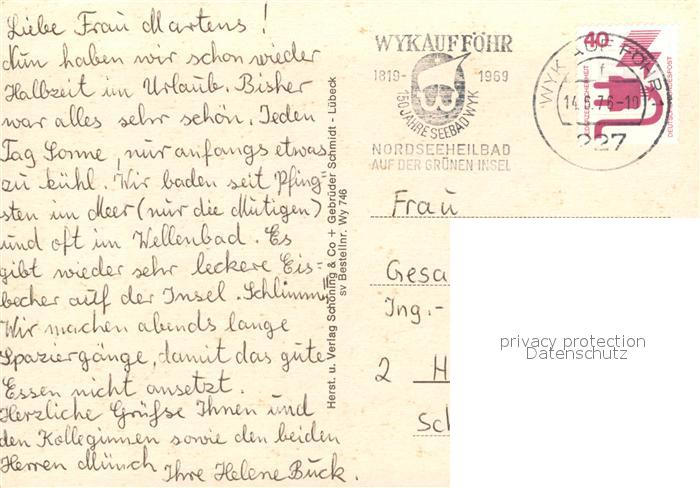 Liebe Frau Martens!
Nun haben wir schon wieder
Halbzeit im Urlaub. Bisher
war alles sehr schön. Jeden
Tag Sonne, nur anfangs etwas
zu kühl. Wir baden seit "Pfing"
sten im Meer (nur die Mutigen)
und oft im Wellenbad. Es
gibt wieder sehr leckere Eis=
becher auf der Insel. Schlimm!!
Wir machen abends lange
Spaziergänge, damit das gute
Essen nicht ansetzt.
Herzliche Grüße Ihnen und
den Kolleginnen sowie den beiden
Herren Münch Ihre Helene Buck.
Herst. u. Verlag Schöning & Co + Gebrüder Schmidt - Lübeck
sv Bestellnr. Wy 746
WYK AUF FÖHR
1819- 1969
150 JAHRE SEEBAD WYK
NORDSEEHEILBAD
AUF DER GRÜNEN INSEL
WYK AUF FÖHR 1
14.6.76-10
227
40
DEUTSCHE BUNDESPOST
Frau
Gesa
Ing.-
2 H
Sch
privacy protection
Datenschutz